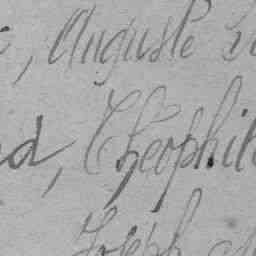 , Auguste
d, Théophil
Joseph